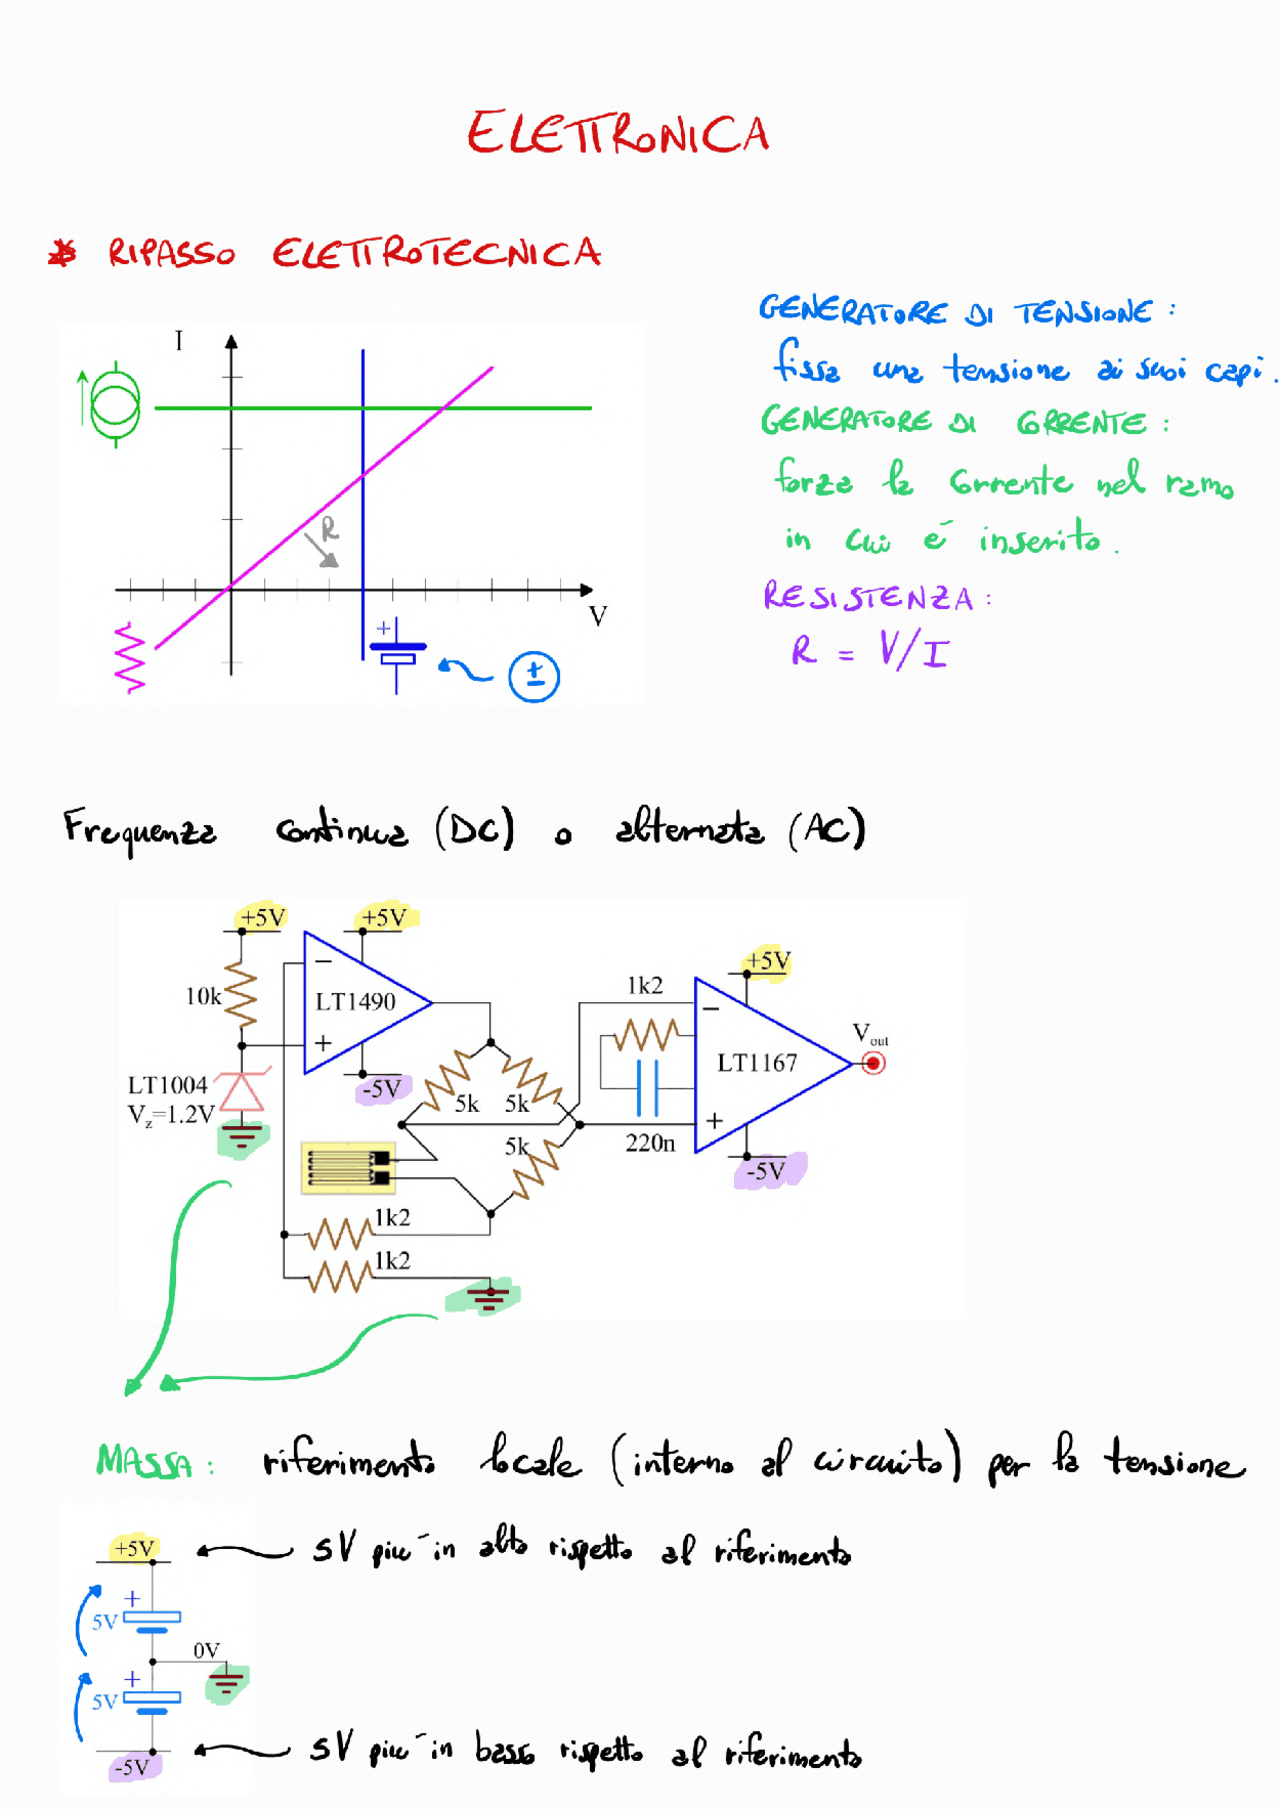 ELETTRONICA
* RIPASSO ELETTROTECNICA
I
V
R
+
±
GENERATORE DI TENSIONE :
fissa una tensione ai suoi capi.
GENERATORE DI CORRENTE :
forza la corrente nel ramo
in cui é inserito.
RESISTENZA :
R = V/I
Frequenza continua (DC) o alternata (AC)
+5V
+5V
10k
−
LT1490
+
-5V
LT1004
Vz=1.2V
5k
5k
5k
1k2
1k2
1k2
220n
+5V
−
LT1167
+
-5V
Vout
MASSA : riferimento locale (interno al circuito) per la tensione
+5V
5V piú in alto rispetto al riferimento
+
5V
0V
+
5V
-5V
5V piú in basso rispetto al riferimento